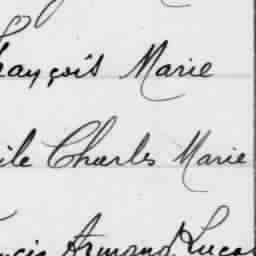 François Marie
ile Charles Marie
ncis Armand Lucas